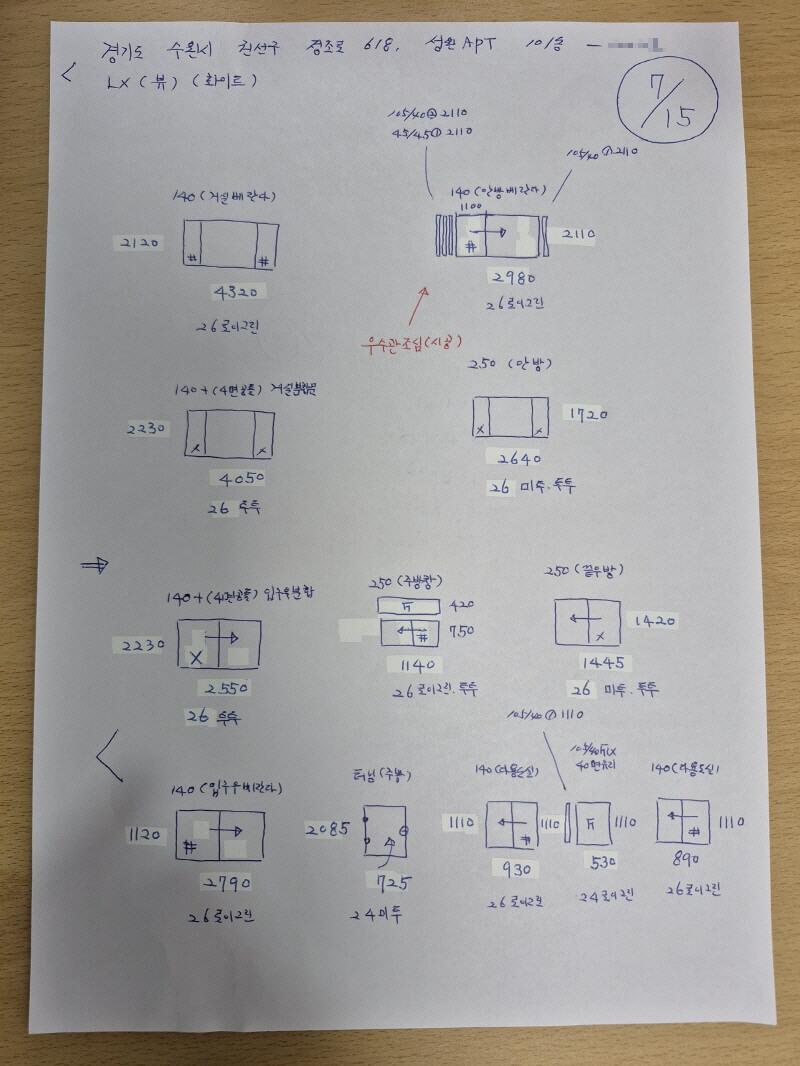 경기도 수원시 권선구 정조로 618, 성원APT 101동
LX (뷰) (화이트)
7/15
105/40② 2110
45/45① 2110
105/40 ① 2110
140 (거실베란다)
2120
#
#
4320
26로이그린
140 (안방베란다)
1100
#
2110
2980
26로이그린
우수관조심(시공)
140+(4면공틀) 거실분합
2230
x
x
4050
26 투투
250 (안방)
1720
x
x
2640
26 미투.투투
140+(4면공틀) 입구우분합
2230
X
2550
26 투투
250 (주방창)
420
FIX
750
#
1140
26로이그린.투투
250 (끝우방)
1420
x
1445
26 미투.투투
140 (입구우베란다)
1120
#
2790
26로이그린
터닝 (주방)
2085
725
24미투
105/40 ① 1110
140(다용도실)
1110
#
930
26로이그린
105/40FIX
40면유리
1110
FIX
1110
530
24로이그린
140(다용도실)
#
1110
890
26로이그린